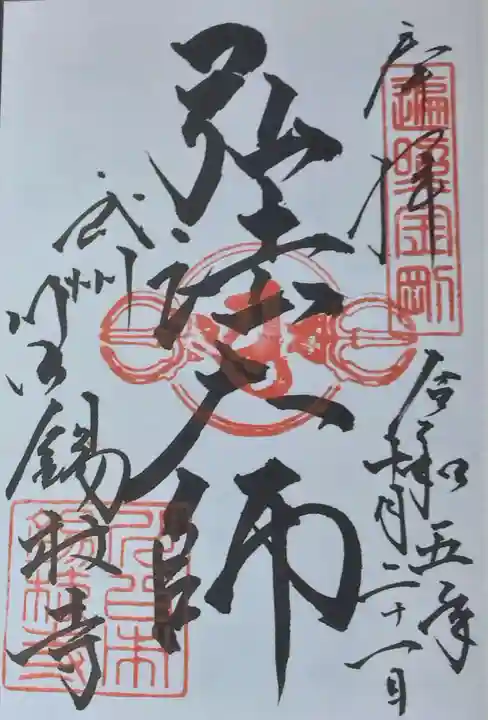 奉拝
遍照金剛
令和五年
十一月二十一日
弘法大師
武州
川口
錫杖寺